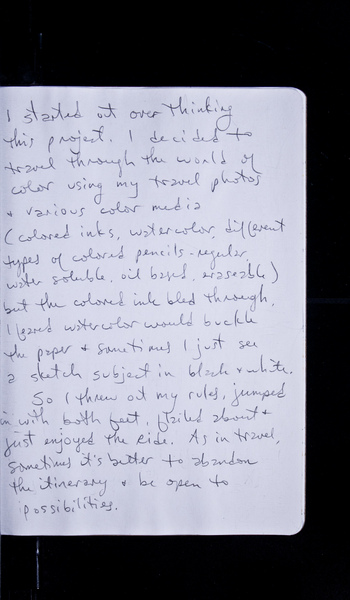 I started out over thinking
this project. I decided to
travel through the world of
color using my travel photos
+ various color media
(colored inks, watercolor, different
types of colored pencils - regular,
water soluble, oil based, eraseable)
but the colored ink bled through,
I feared watercolor would buckle
the paper + sometimes I just see
a sketch subject in black + white.
So I threw out my rules, jumped
in with both feet, flailed about +
just enjoyed the ride. As in travel,
sometimes it's better to abandon
the itinerary + be open to
possibilities.